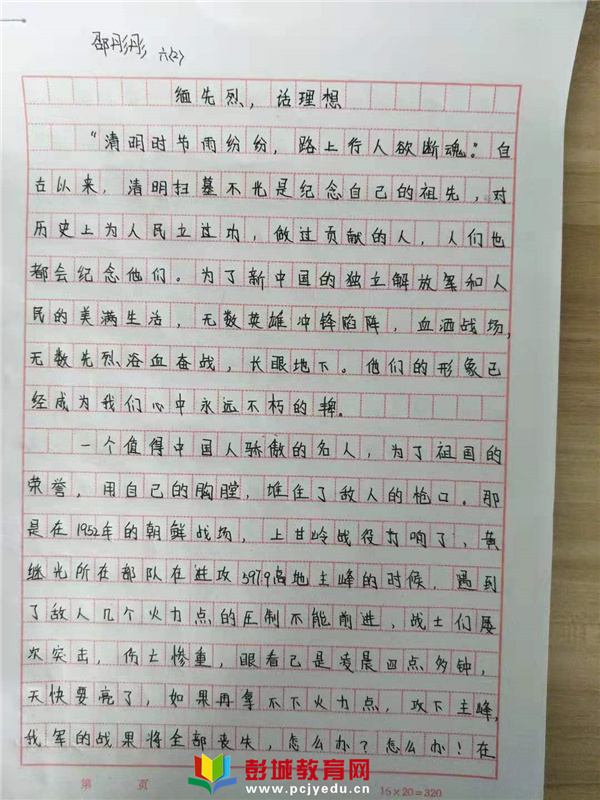 邵彤彤 六(2)
缅先烈，话理想
“清明时节雨纷纷，路上行人欲断魂。”自
古以来，清明扫墓不光是纪念自己的祖先，对
历史上为人民立过功，做过贡献的人，人们也
都会纪念他们。为了新中国的独立解放军和人
民的美满生活，无数英雄冲锋陷阵，血洒战场，
无数先烈浴血奋战，长眼地下。他们的形象已
经成为我们心中永远不朽的碑。
一个值得中国人骄傲的名人，为了祖国的
荣誉，用自己的胸膛，堆住了敌人的枪口。那
是在1952年的朝鲜战场，上甘岭战役打响了、黄
继光所在部队在进攻597.9高地主峰的时候，遇到
了敌人几个火力点的压制不能前进，战士们屡
次突击，伤亡惨重，眼看已是凌晨四点多钟，
天快要亮了，如果再拿不下火力点，攻下主峰，
我军的战果将全部丧失，怎么办？怎么办！在
第 页
15×20=320
彭城教育网
www.pcjyedu.cn